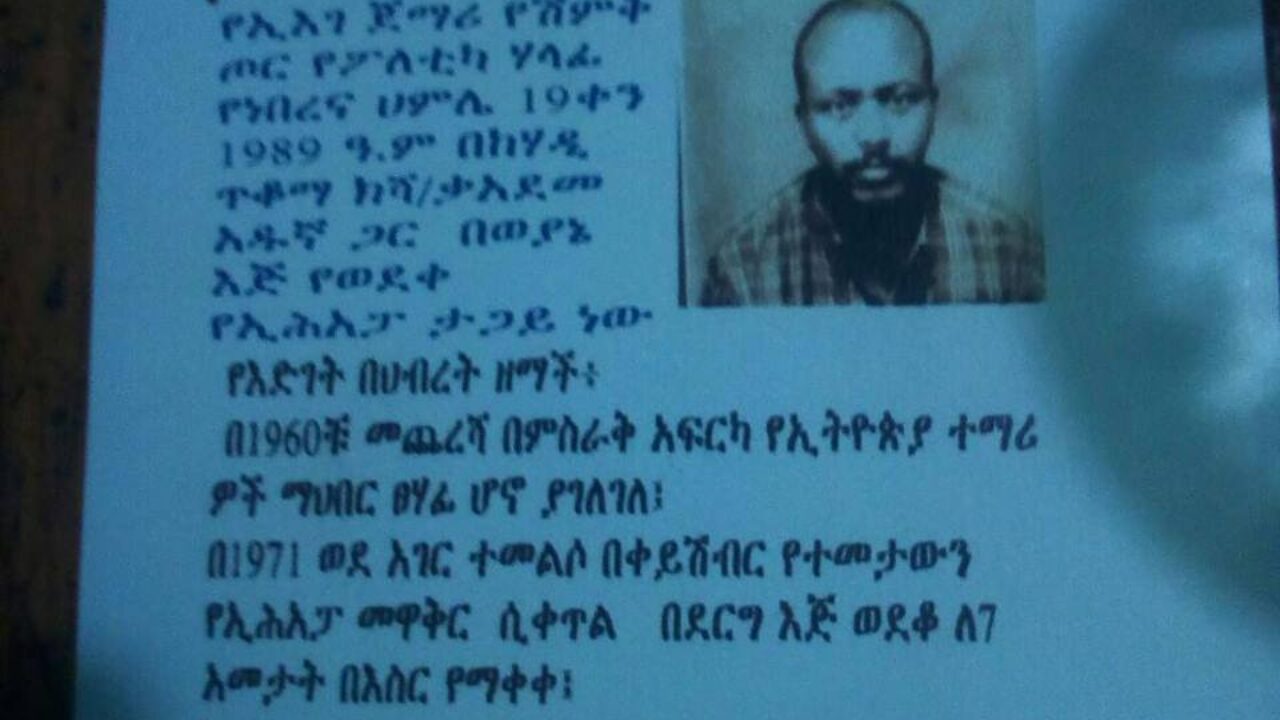 የኢአገ ጀማሪ የሽምት
ጦር የፖለቲካ ሃላፊ
የነበረና ሀምሌ 19ቀን
1989 ዓ.ም በከሃዲ
ጥቆማ ክሻ/ቃአደመ
አዱኛ ጋር በወያኔ
እጅ የወደቀ
የኢሕአፓ ታጋይ ነው
የእድገት በህብረት ዘማች፥
በ1960ቹ መጨረሻ በምስራቅ አፍርካ የኢትዮጵያ ተማሪ
ዎች ማህበር ፀሃፊ ሆኖ ያገለገለ፤
በ1971 ወደ አገር ተመልሶ በቀይሽብር የተመታውን
የኢሕአፓ መዋቅር ሲቀጥል በደርግ እጅ ወደቆ ለ7
አመታት በእስር የማቀቀ፤